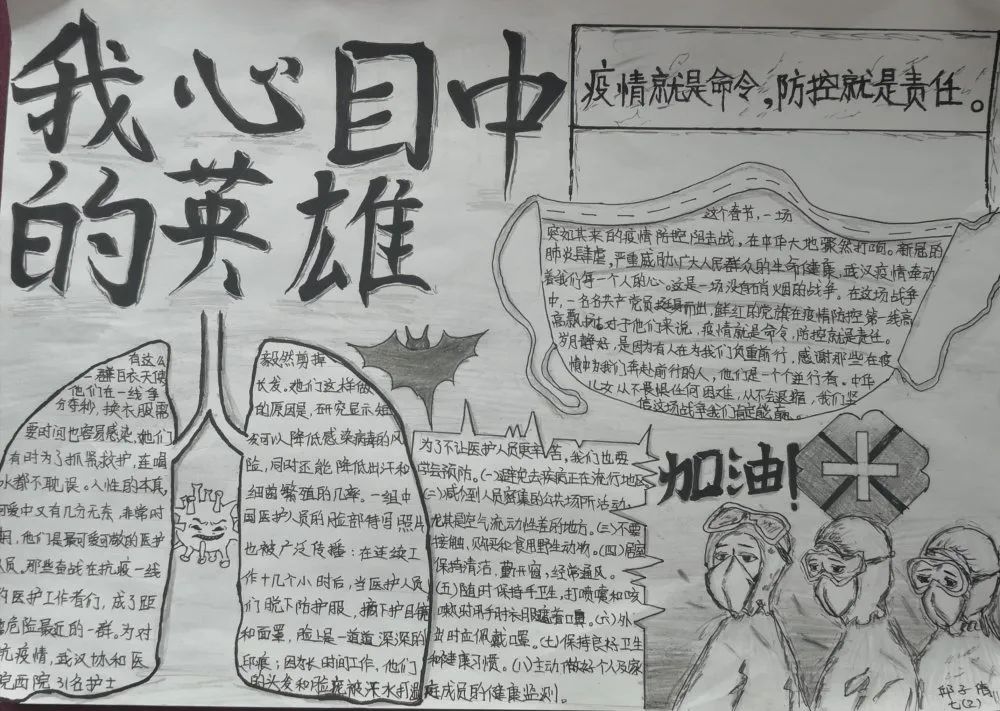 我心目中
的英雄
疫情就是命令，防控就是责任。
这个春节，一场
突如其来的疫情防控阻击战，在中华大地骤然打响。新冠的
肺炎肆虐，严重威胁广大人民群众的生命健康。武汉疫情牵动
着我们每一个人的心。这是一场没有硝烟的战争。在这场战争
中，一名名共产党员挺身而出，鲜红的党旗在疫情防控第一线高
高飘扬。对于他们来说，疫情就是命令，防控就是责任。
岁月静好，是因为有人在为我们负重前行，感谢那些在疫
情中为我们奔赴前行的人，他们是一个个逆行者。中华
儿女从不畏惧任何困难，从不会退缩，我们坚
信这场战争我们肯定能赢。
有这么
一群白衣天使
他们在一线争
分夺秒，换衣服需
要时间也容易感染，她们
有时为了抓紧救护，连喝
水都不耽误。人性的本真，
可爱中又有几分无奈，非常时
期，他们是最可爱可敬的医护
人员。那些奋战在抗疫一线
的医护工作者们，成了距
离危险最近的一群。为对
抗疫情，武汉协和医
院西院31名护士
毅然剪掉
长发。她们这样做
的原因是，研究显示短
发可以降低感染病毒的风
险，同时还能降低出汗和
细菌繁殖的几率。一组中
国医护人员的脸部特写照片
也被广泛传播：在连续工
作十几个小时后，当医护人员
们脱下防护服、摘下护目镜
和面罩，脸上是一道道深深的
印痕；因长时间工作，他们
的头发和脸庞被汗水打湿
为了不让医护人员更辛苦，我们也要
学会预防。(一)避免去疾病正在流行地区
(二)减少到人员密集的公共场所活动，
尤其是空气流动性差的地方。(三)不要
接触、购买和食用野生动物。(四)居室
保持清洁，勤开窗，经常通风。
(五)随时保持手卫生，打喷嚏和咳
嗽时用手肘衣服遮着口鼻。(六)外
出时应佩戴口罩。(七)保持良好卫生
和健康习惯。(八)主动做好个人及家
庭成员的健康监测。
加油！
七(2)